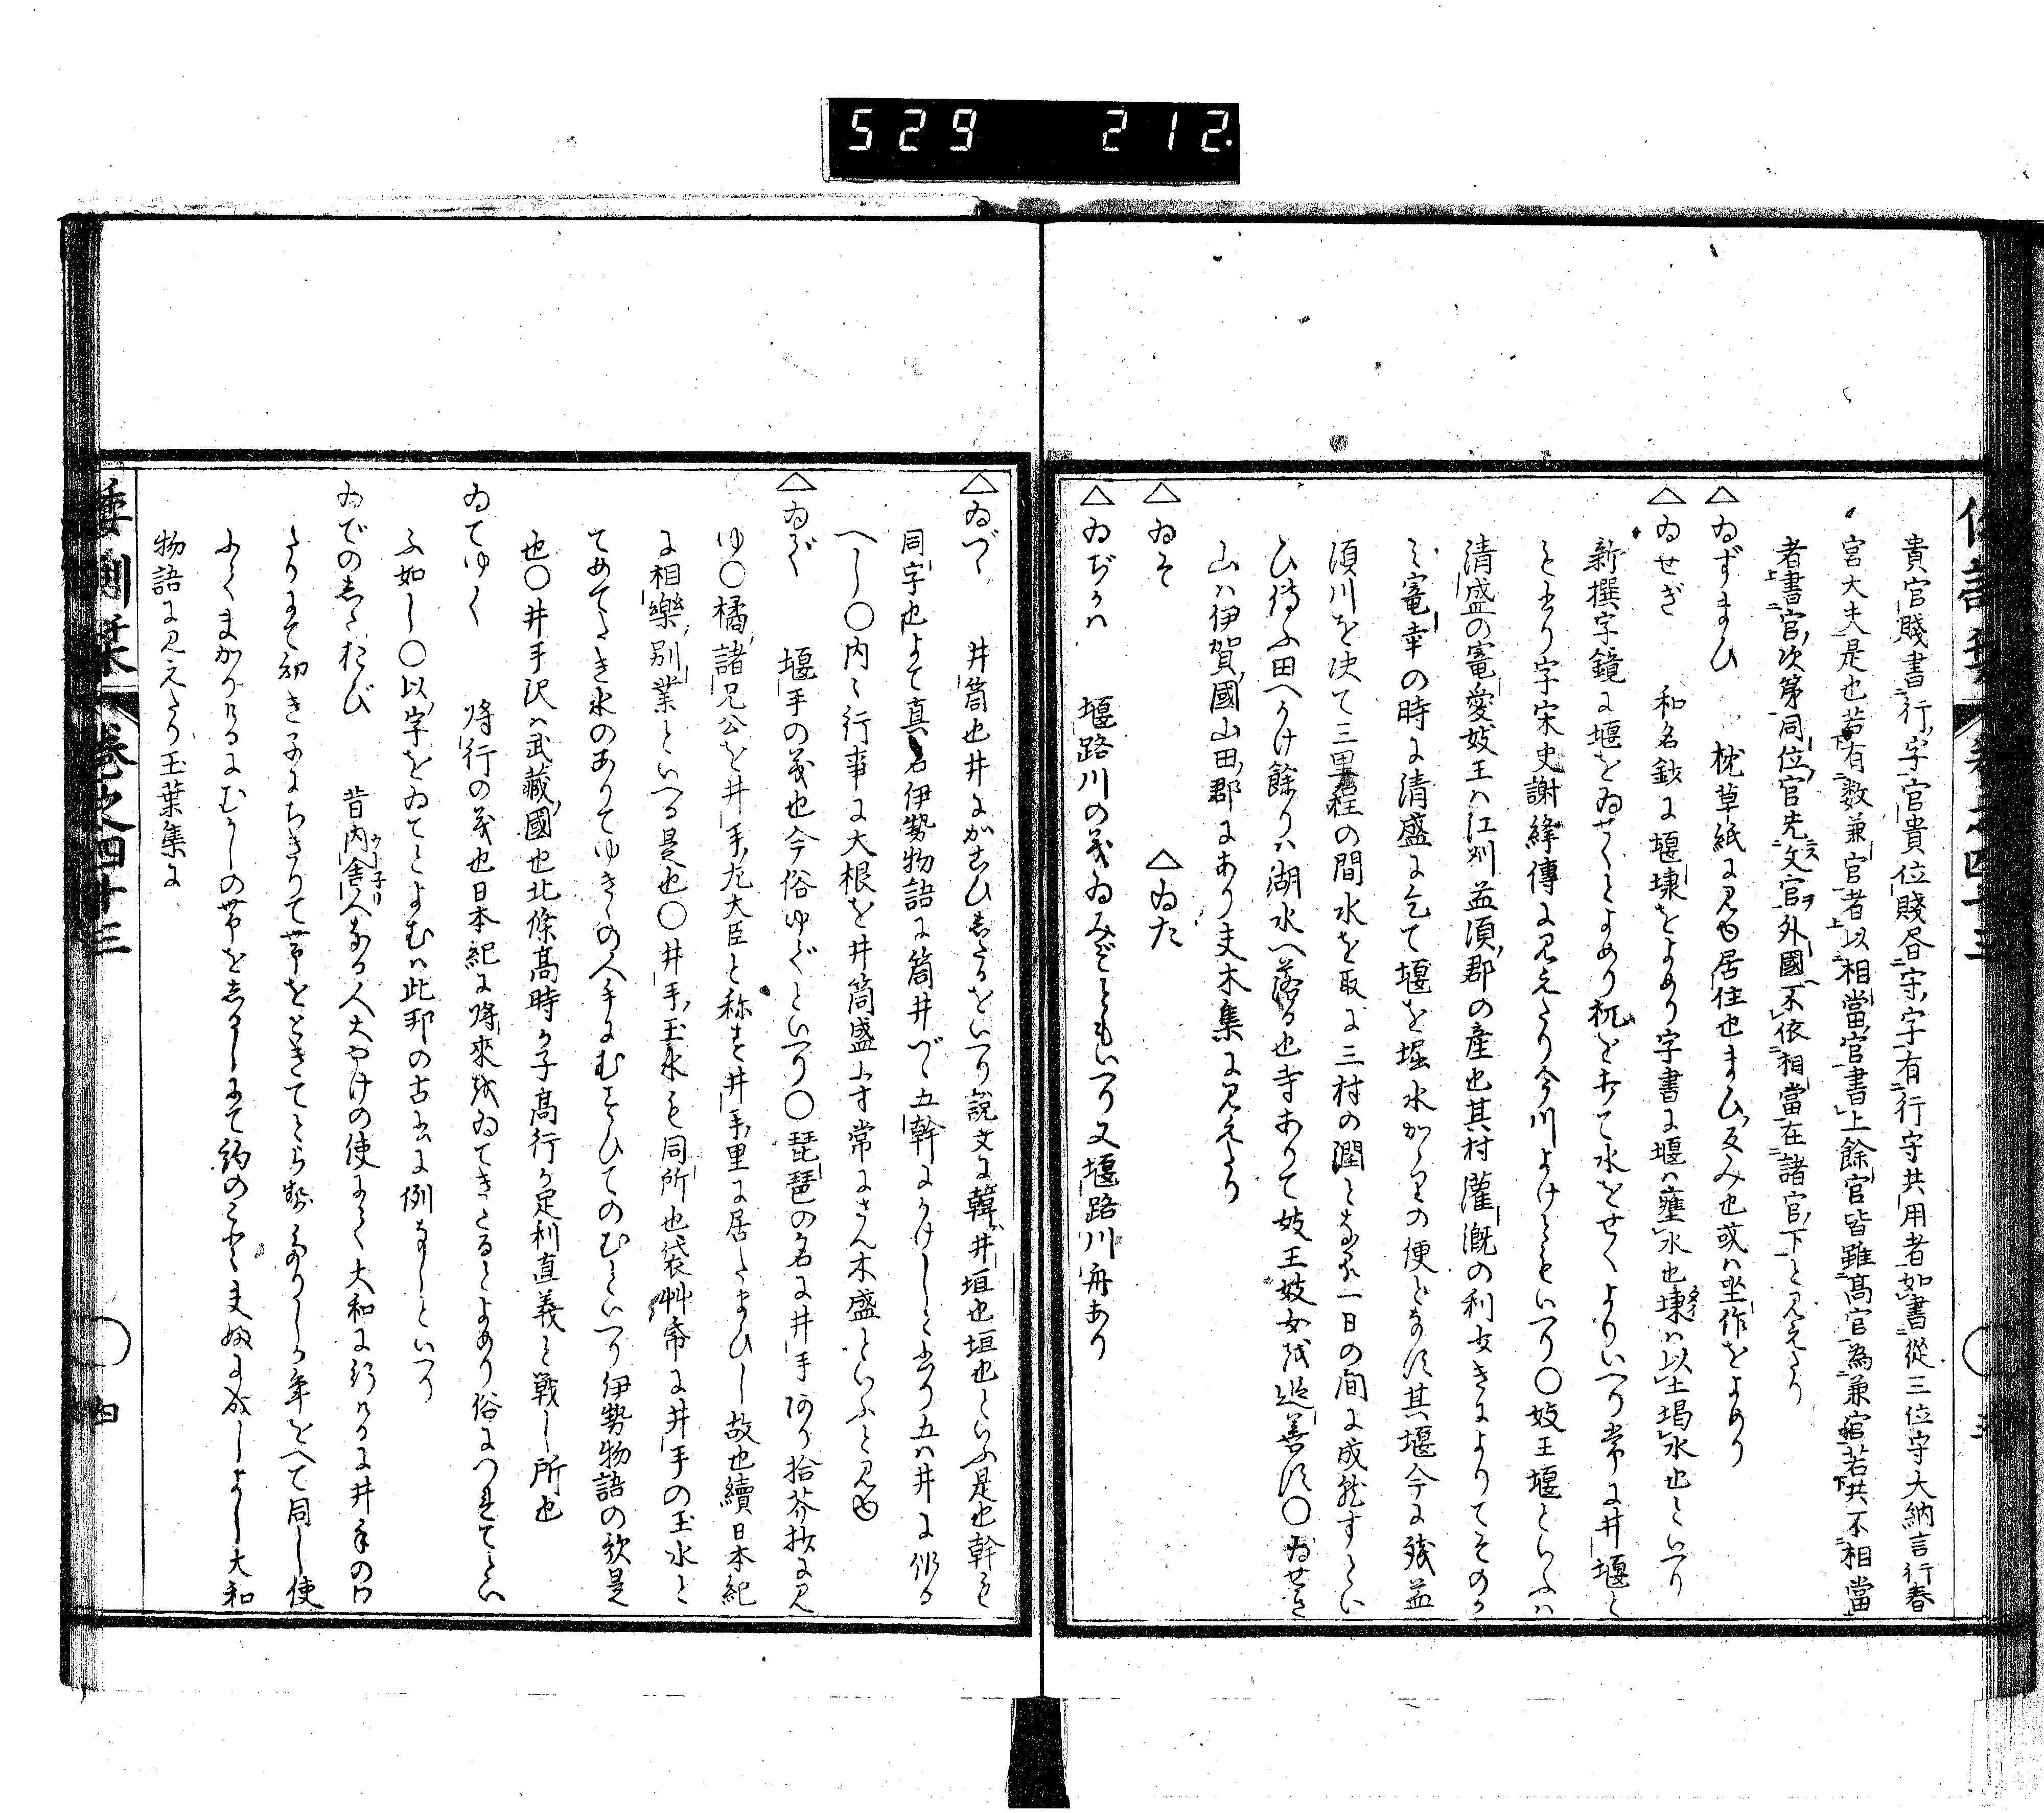 529 212.
貴官賤書行字官貴位賤昏守字有行守共用者如書從三位守大納言行春
宮大夫是也若有数兼官者以相當官書上餘官皆雖高官為兼官若共不相當
者書官次第同位官先文官外國不依相當在諸官下と見えたり
△ゐずまひ 枕草紙に見ゆ居住也まひ反み也或ハ坐作をよめり
△ゐせぎ 和名鈔に堰埭をよめり字書に堰ハ壅水也埭ハ以土堨水也といへり
新撰字鏡に堰をゐせくとよめり杭をうちて水をせくよりいへり常に井堰と
とより字宋史謝絳傳に見えたり今川よけともいへり〇妓王堰といふハ
清盛の寵愛妓王ハ江州益須郡の産也其村灌漑の利なきによりてそのか
ミ寵幸の時に清盛に乞て堰を堀水かゝりの便となす其堰今に殘益
須川を决て三里程の間水を取に三村の潤となる一日の間に成就すとい
ひ傳ふ田へかけ餘りハ湖水へ落る也寺ありて妓王妓女を追善す〇ゐせき
山ハ伊賀國山田郡にあり夫木集に見えたり
△ゐそ △ゐた
△ゐぢかハ 堰路川の義ゐみぞともいへり又堰路川舟あり
倭訓栞 巻之四十三 三
△ゐづゝ 井筒也井にかこひしたるをいへり説文に韓井垣也垣也といふ是也幹も
同字也よて真名伊勢物語に筒井づゝ五幹にかけしとより五ハ井に作る
へし〇内々行事に大根を井筒盛小寸常にさん木盛といふと見ゆ
△ゐで 堰手の義也今俗ゆでといへり〇琵琶の名に井手あり拾芥抄に見
ゆ〇橘諸兄公を井手左大臣と称す井手里に居たまひし故也續日本紀
に相樂別業といへる是也〇井手玉水も同所也袋艸帋に井手の玉水と
てめてたき水のありてゆきゝの人手にむすひてのむといへり伊勢物語の歌是
也〇井手沢ハ武藏國也北條高時か子高行か足利直義と戰し所也
ゐてゆく 將行の義也日本紀に將來をゐてきたるとよめり俗につれてとい
ふ如し〇以字をゐてとよむハ此邦の古文に例なしといへり
ゐでのしたおび 昔内舎人なる人大やけの使にて大和に行けるに井手の
わたりにて初き子にちきりて帯をときてとらせたりしか年をへて同し使
にてまかりけるにむかしの帯をしるしにて約のごとく夫婦に成しよし大和
物語に見えたり玉葉集に
倭訓栞 巻之四十三 四